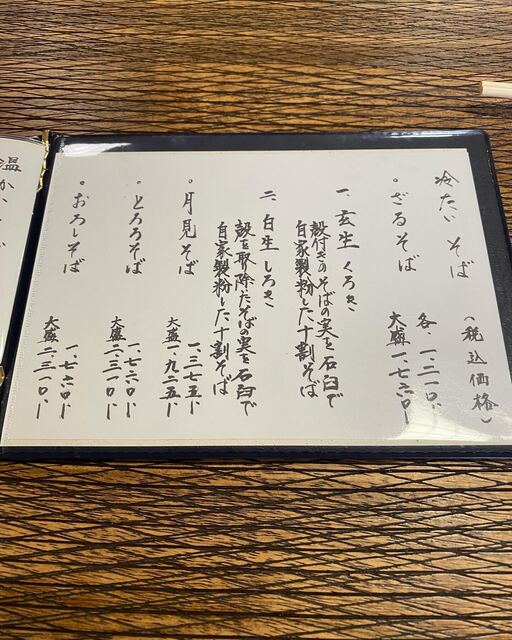 冷たい そば
(税込価格)
。ざるそば
各、一、二一〇、一
大盛一、七六〇、一
一、玄生 くろき
殻付きのそばの実を石臼で
自家製粉した、十割そば
二、白生 しろき
殻を取除たそばの実を石臼で
自家製粉した、十割そば
。月見そば
一、三七五、一
大盛一、九二五、一
。とろろそば
一、七六〇、一
大盛二、三一〇、一
。おろしそば
一、七六〇、一
大盛二、三一〇、一
温か